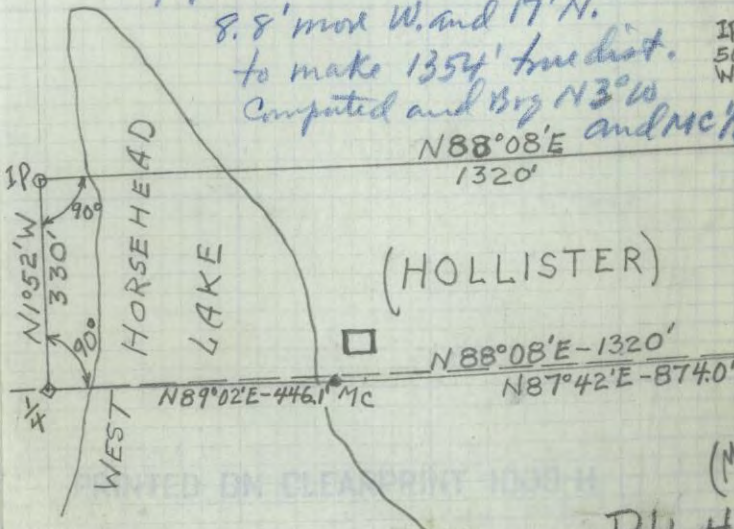 8.8' more W. and 17' N.
to make 1354' true dist.
Computed and Brg N3°W
and MC
IP
N88°08'E
1320'
IP
90°
N1°52'W
330'
90°
HORSEHEAD
LAKE
WEST
(HOLLISTER)
N88°08'E-1320'
N89°02'E-446.1' MC
N87°42'E-874.0'
1/4
PRINTED ON CLEARPRINT 1000 H